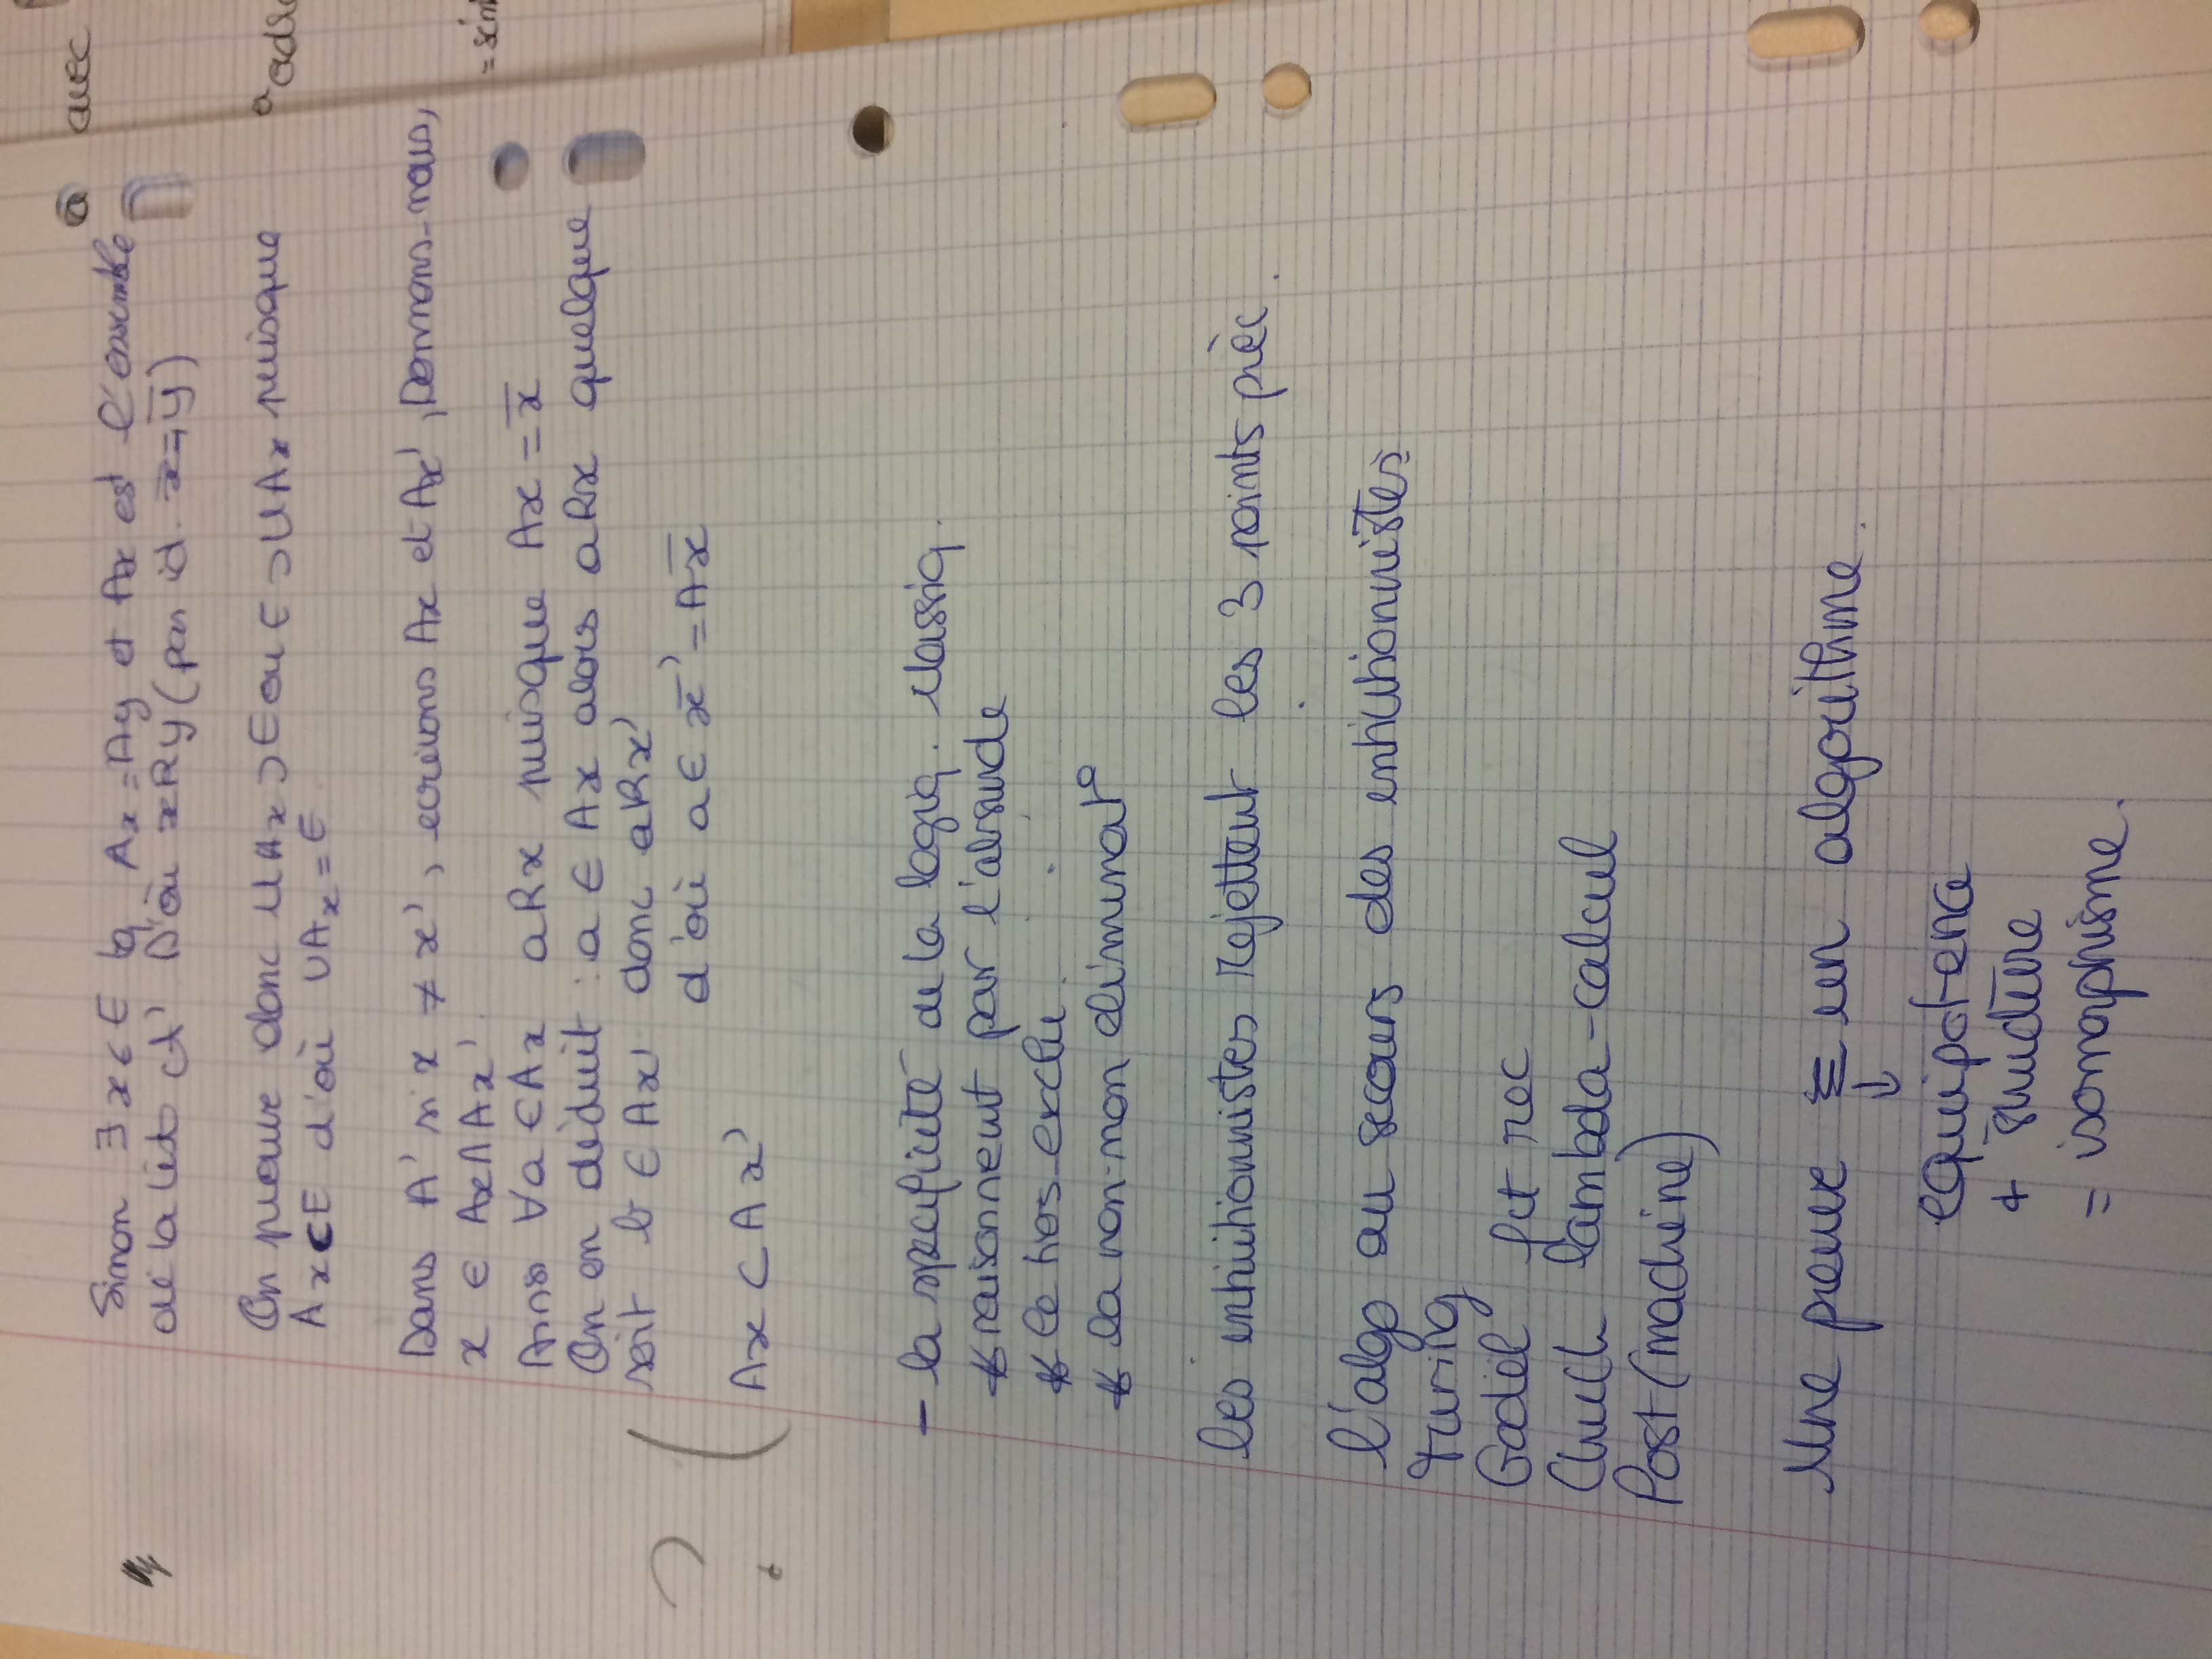 Sinon ∃ x ∈ E tq Ax = Ay et Ax est l'ensemble
de la liste A' D'où xRy (par id. x̄ = ȳ)
On prouve donc ∪Ax ⊃ E ou E ⊃ ∪Ax puisque
Ax ⊂ E d'où ∪Ax = E
Dans A' si x ≠ x', ecrivons Ax et Ax', Donnons-nous,
x ∈ Ax ∩ Ax'.
Ainsi ∀a ∈ Ax aRx puisque Ax = x̄
On en déduit : a ∈ Ax alors aRx quelque
soit b ∈ Ax' donc aRx'
d'où a ∈ x̄' = Ax̄
? ( Ax ⊂ Ax'
- la specificité de la logiq. classiq.
* raisonnemt par l'absurde
* le tiers-exclu.
* la non-non eliminat°
les intuitionnistes rejettent les 3 points préc.
l'algo au secours des intuitionnistes
Turing
Godël fct rec
Chuch lambda-calcul
Post (machine)
Une preuve ≡ un algorithme.
↓
equipotence
+ structure
= isomorphisme.
a avec